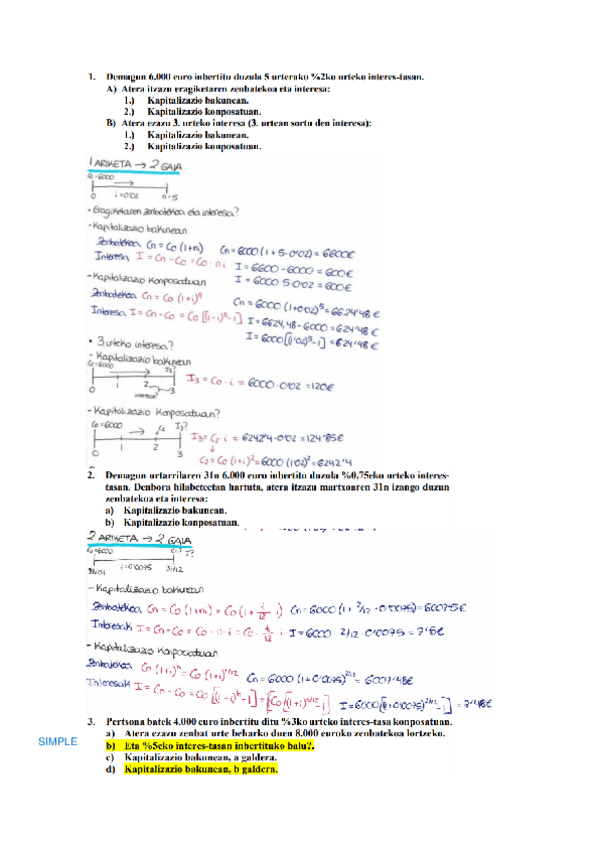 1. Demagun 6.000 euro inbertitu duzula 5 urterako %2ko urteko interes-tasan.
A) Atera itzazu eragiketaren zenbatekoa eta interesa:
1.) Kapitalizazio bakunean.
2.) Kapitalizazio konposatuan.
B) Atera ezazu 3. urteko interesa (3. urtean sortu den interesa):
1.) Kapitalizazio bakunean.
2.) Kapitalizazio konposatuan.
1 ARIKETA → 2 GAIA
Co=6000
0 i=0'02 n=5
• Eragiketaren zenbatekoa eta interesa?
- Kapitalizazio bakunean
Zenbatekoa Cn = Co (1+ni) Cn = 6000 (1+5·0'02) = 6600€
Interesa I = Cn - Co = Co · n · i I = 6600 - 6000 = 600€
I = 6000·5·0'02 = 600€
- Kapitalizazio Konposatuan
Zenbatekoa Cn = Co (1+i)^n Cn = 6000 (1+0'02)^5 = 6624'48 €
Interesa I = Cn - Co = Co [(1+i)^n - 1] I = 6624,48 - 6000 = 624'48 €
I = 6000[(1'02)^5 - 1] = 624'48 €
• 3 urteko interesa?
- Kapitalizazio bakunean
Co=6000 I3?
I3 = Co · i = 6000 · 0'02 = 120€
0 1 2 3
interesa?
- Kapitalizazio Konposatuan?
Co=6000 C2 I3?
I3 = C2 · i = 6242'4 · 0'02 = 124'85€
0 1 2 3
C2 = Co (1+i)^2 = 6000 (1'02)^2 = 6242'4
2. Demagun urtarrilaren 31n 6.000 euro inbertitu duzula %0,75eko urteko interes-
tasan. Denbora hilabeteetan hartuta, atera itzazu martxoaren 31n izango duzun
zenbatekoa eta interesa:
a) Kapitalizazio bakunean.
b) Kapitalizazio konposatuan.
2 ARIKETA → 2 GAIA
Co=6000
i=0'0075
- Kapitalizazio bakunean
Zenbatekoa Cn = Co (1+ni) = Co (1+ t/12 · i) Cn = 6000 (1+ 2/12 · 0'0075) = 6007'5€
Interesak I = Cn - Co = Co · n · i = Co · t/12 · i I = 6000 · 2/12 · 0'0075 = 7'5€
- Kapitalizazio Konposatuan
Zenbatekoa Co (1+i)^n = Co (1+i)^t/12 Cn = 6000 (1+0'0075)^2/12 = 6007'48€
Interesak I = Cn - Co = Co [(1+i)^n - 1] = [Co [(1+i)^t/12 - 1] I = 6000[(1+0'0075)^2/12 - 1] = 7'48€
3. Pertsona batek 4.000 euro inbertitu ditu %3ko urteko interes-tasa konposatuan.
a) Atera ezazu zenbat urte beharko duen 8.000 euroko zenbatekoa lortzeko.
SIMPLE b) Eta %5eko interes-tasan inbertituko balu?.
c) Kapitalizazio bakunean, a galdera.
d) Kapitalizazio bakunean, b galdera.